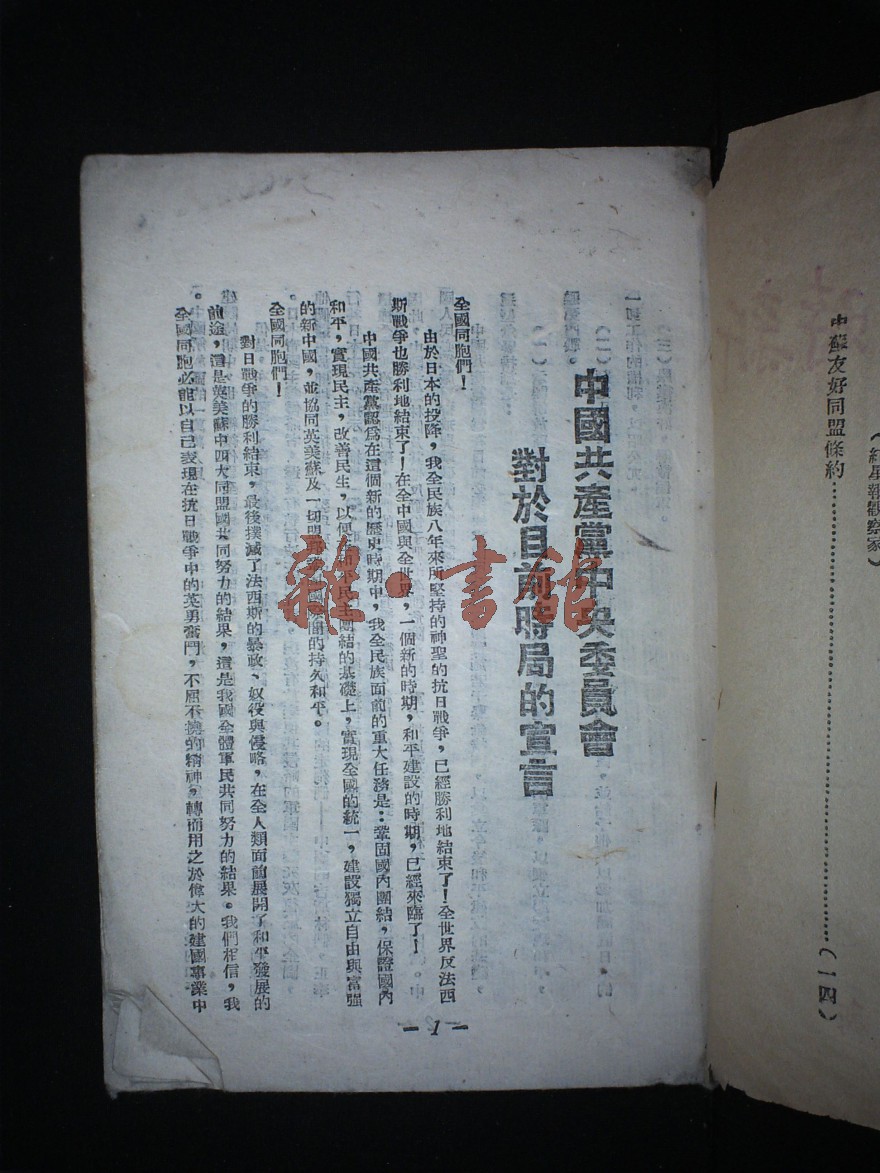 （紅星報觀察家）
中蘇友好同盟條約……………………（一四）
中國共產黨中央委員會
對於目前時局的宣言
全國同胞們！
由於日本的投降，我全民族八年來所堅持的神聖的抗日戰爭，已經勝利地結束了！全世界反法西
斯戰爭也勝利地結束了！在全中國與全世界，一個新的時期，和平建設的時期，已經來臨了！
中國共產黨認爲在這個新的歷史時期中，我全民族面前的重大任務是：鞏固國內團結，保證國內
和平，實現民主，改善民生，以便在和平民主團結的基礎上，實現全國的統一，建設獨立自由與富強
的新中國，並協同英美蘇及一切盟國間的持久和平。
全國同胞們！
對日戰爭的勝利結束，最後撲滅了法西斯的暴政、奴役與侵略，在全人類面前展開了和平發展的
前途，這是英美蘇中四大同盟國共同努力的結果，這是我國全體軍民共同努力的結果。我們相信，我
全國同胞必能以自己表現在抗日戰爭中的英勇奮鬥，不屈不撓的精神，轉而用之於偉大的建國事業中
—1—
雜·書館